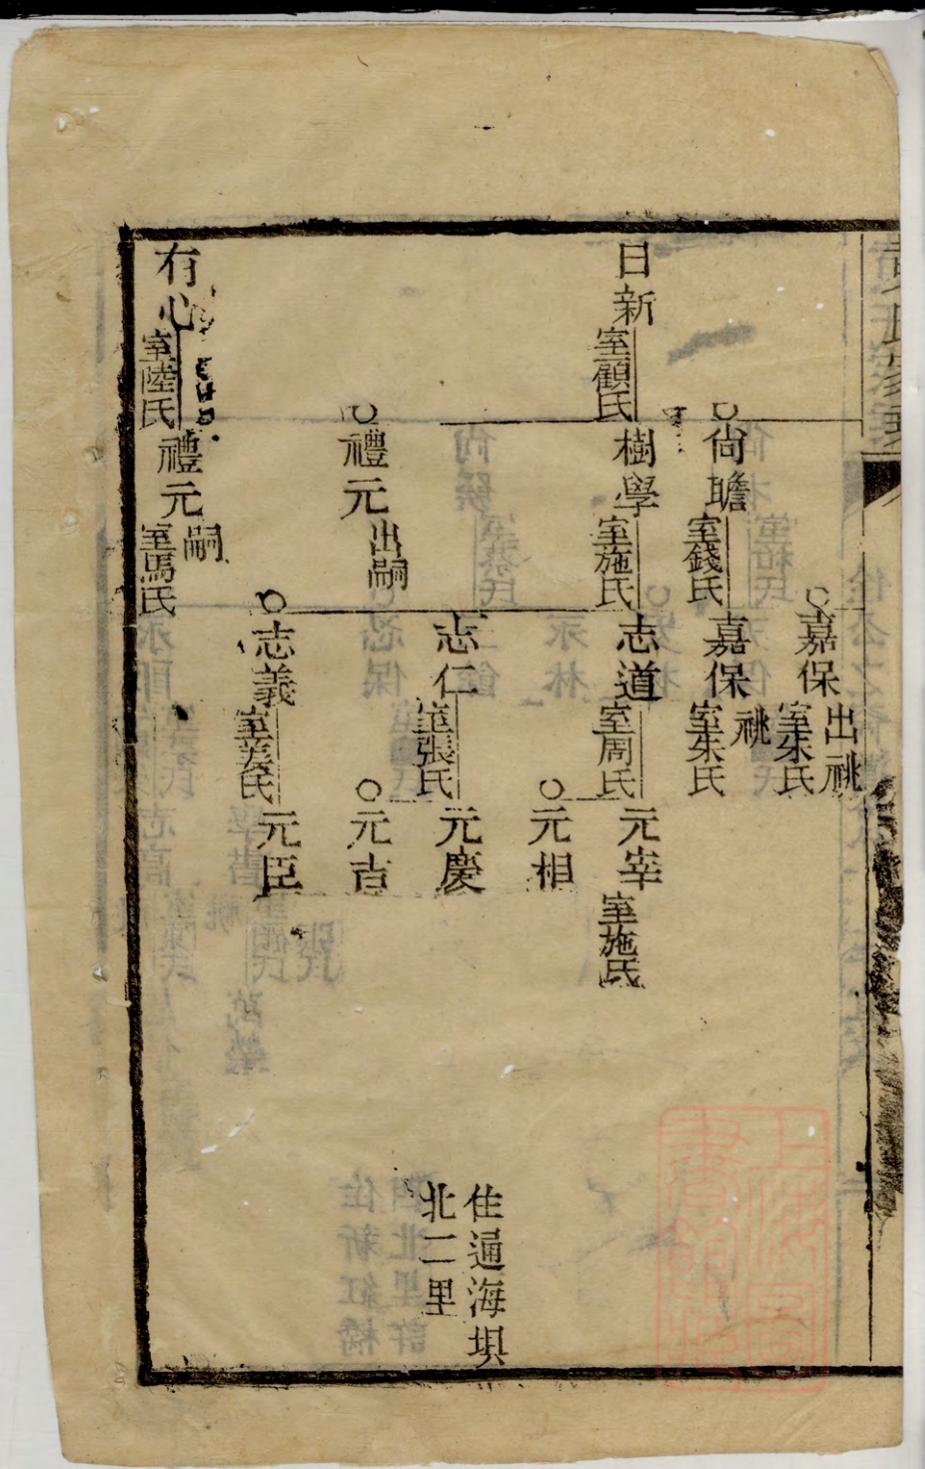 嘉保 出祧 室朱氏
尙瞻 室錢氏
嘉保 祧 室朱氏
日新 室顧氏
樹學 室施氏
志道 室周氏
元宰 室施氏
元相
志仁 室張氏
元慶
禮元 出嗣
元吉
志義 室姜氏
元臣
住通海垻
北二里
有心 室陸氏
禮元 嗣 室馬氏